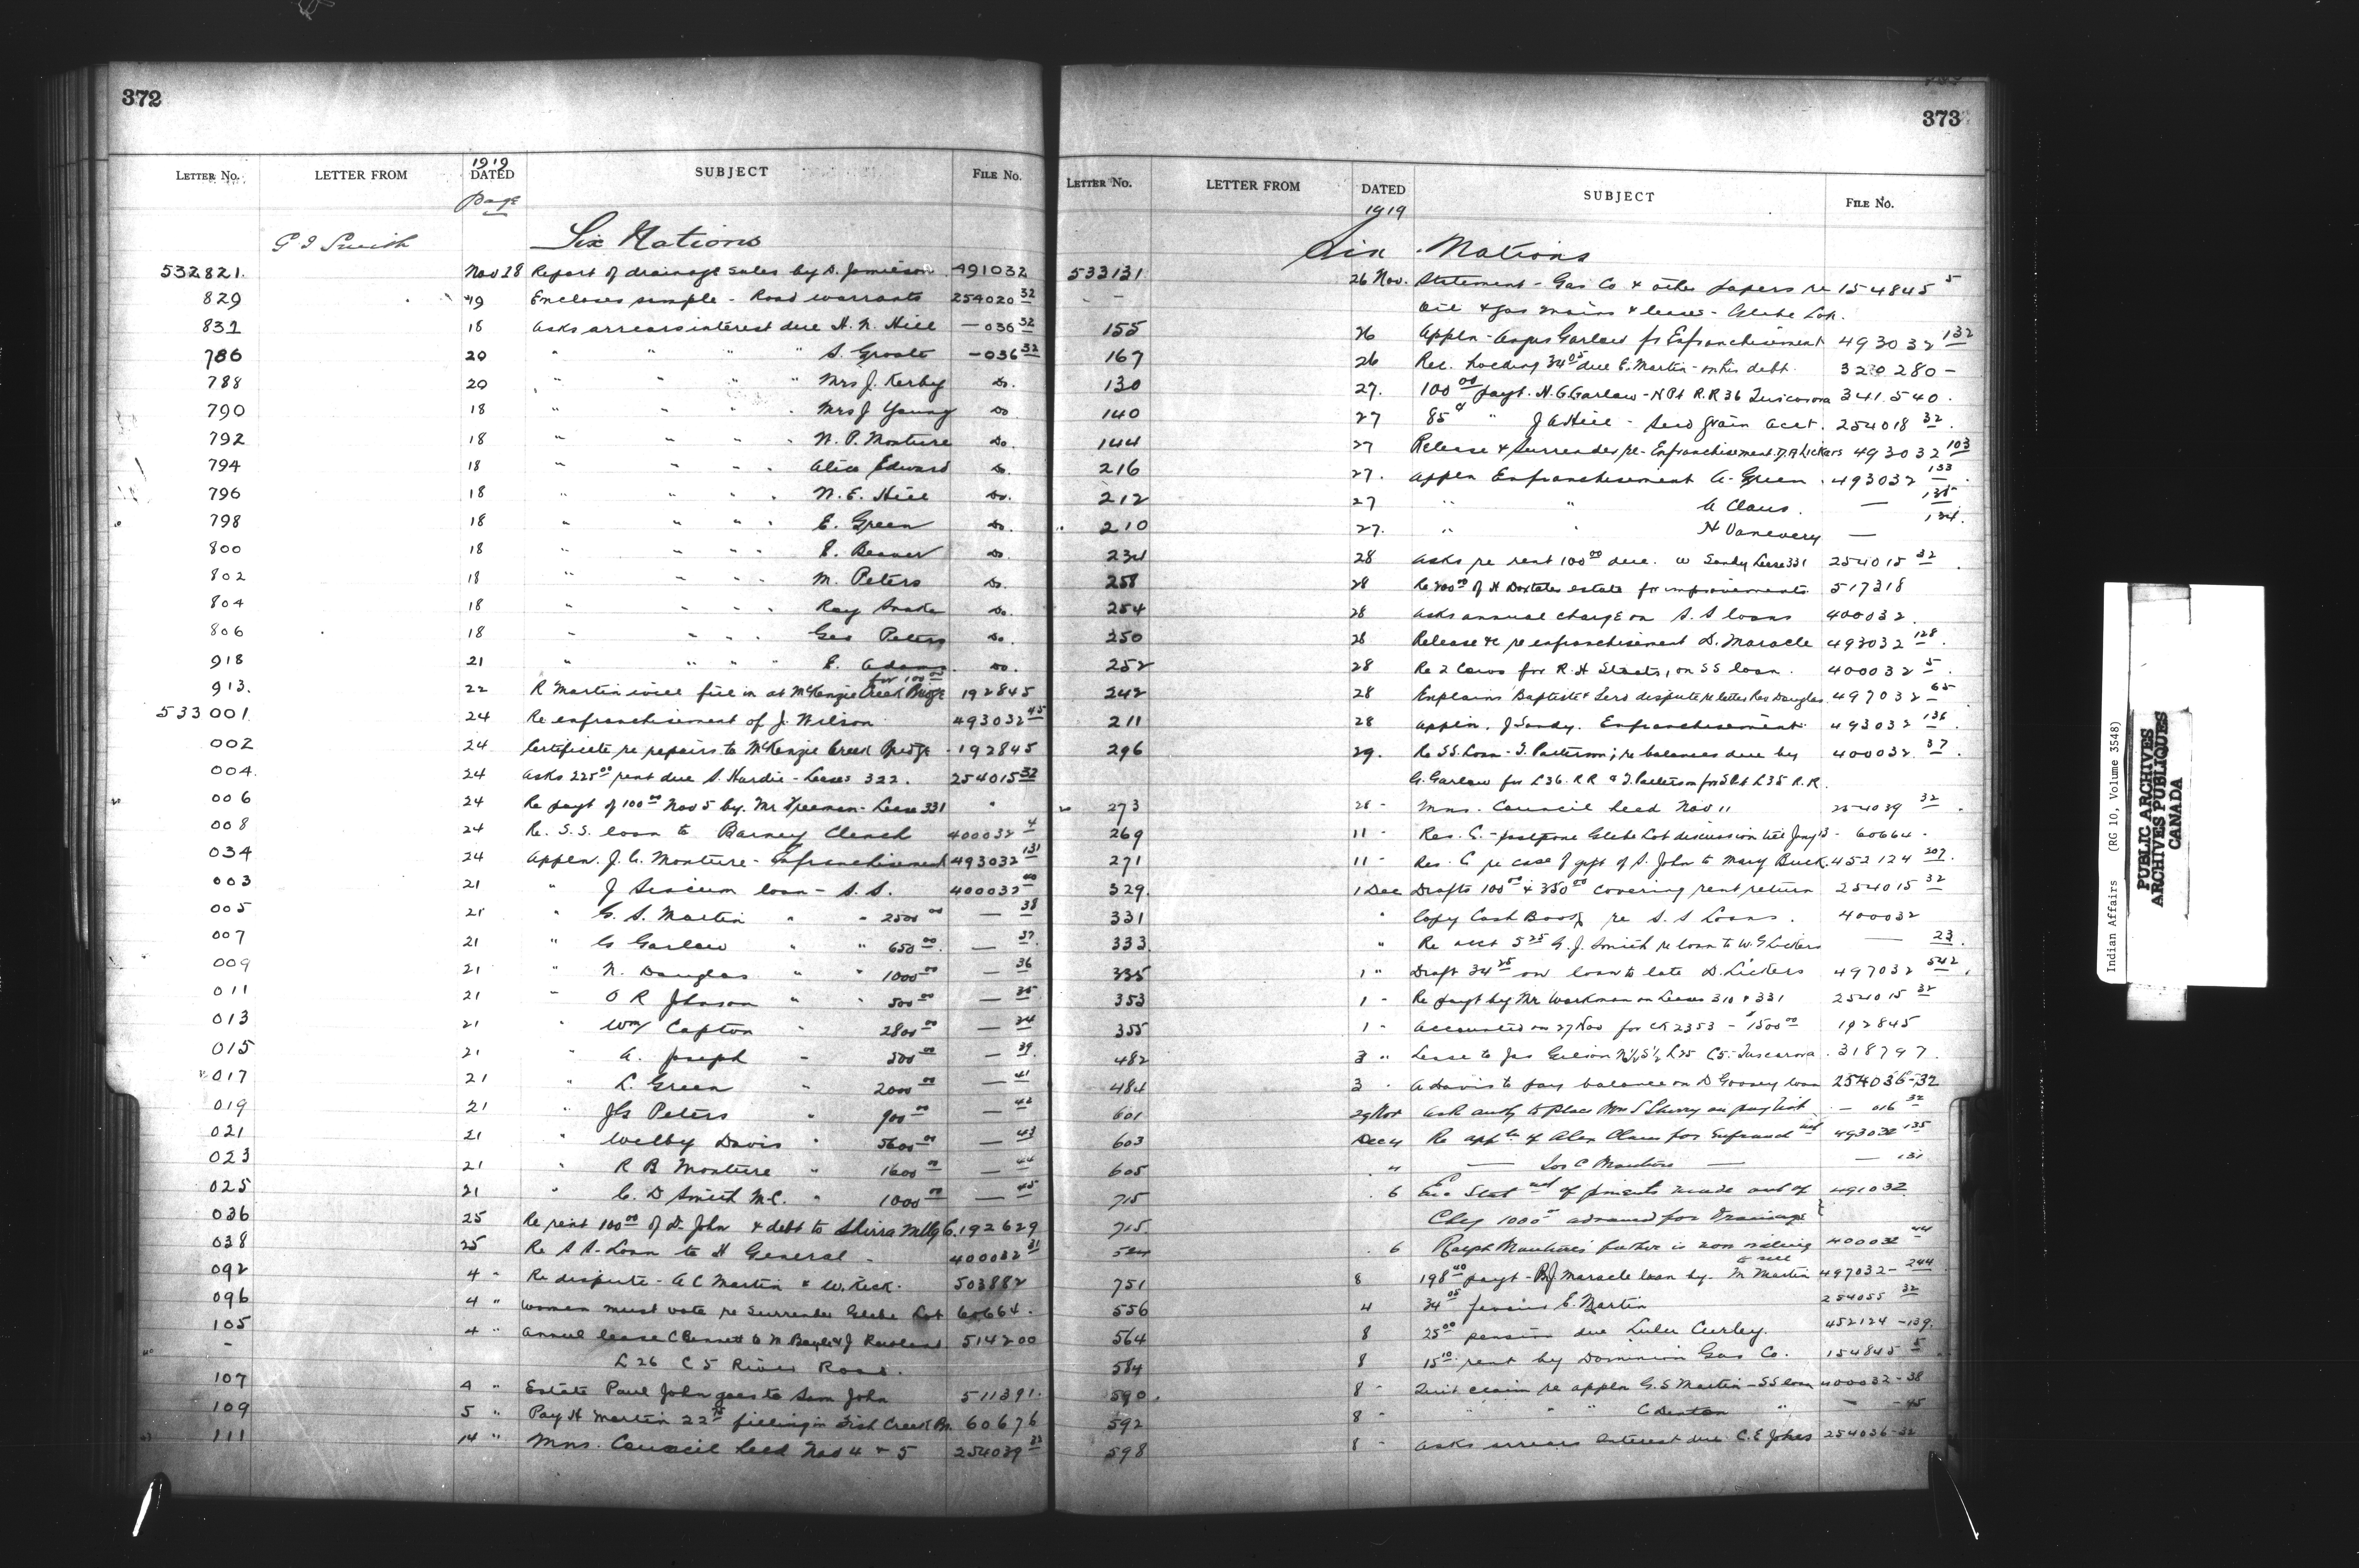 372
LETTER No. LETTER FROM 1919 DATED SUBJECT FILE No.
Page
G J Smith Six Nations
532821. Nov 18 Report of drainage sales by S. Jamieson 491032
829 19 Encloses sample - Road warrants 254020 32
831 18 Asks arrears interest due H. N. Hill — 036 32
786 20 " " " " S. Groat — 036 32
788 20 " " " " Mrs J. Kerby Do.
790 18 " " " " Mrs J Young Do
792 18 " " " " N. P. Monture Do.
794 18 " " " " Alice Edward Do.
796 18 " " " " N. E. Hill Do.
798 18 " " " " E. Green Do.
800 18 " " " " E. Beaver Do
802 18 " " " " M. Peters Do.
804 18 " " " " Ray Snake Do.
806 18 " " " " Geo Peters Do.
918 21 " " " " E. Adams Do.
for 100 00
913. 22 R Martin will fill in at McKenzie Creek Bridge 192845
533001 24 Re enfranchisement of J. Wilson 493032 45
002 24 Certificate re repairs to McKenzie Creek Bridge - 192845
004. 24 Asks 225 00 rent due S. Hardie - Lease 322. 254015 32
006 24 Re payt of 100 00 Nov 5 by Mr Freeman - Lease 331 "
008 24 Re. S.S. loan to Barney Clench 400032 4
034 24 Appln. J. C. Monture - Enfranchisement 493032 131
003 21 " J loan - S. S. 400032 40
005 21 " G. S. Martin " " 2500 00 — 38
007 21 " G Garlow " " 650 00 — 37.
009 21 " N. Douglas " " 1000 00 — 36
011 21 " O R Jhnson " " 500 00 — 35
013 21 " Wm Capton " 2800 00 — 34
015 21 " A. Joseph " 500 00 — 39.
017 21 " L. Green " 2000 00 — 41
019 21 " Jas Peters " 900 00 — 42
021 21 " Welby Davis " 5600 00 — 43
023 21 " R B Monture " 1600 00 — 44
025 21 " C. D Smith M.C. " 1000 00 — 45
036 25 Re rent 100 00 of D. John & debt to Shirra Mllg C. 192629
038 25 Re S S. Loan to H General - 400032 31
092 4 " Re dispute - A C Martin & W. Keck. 503882
096 4 " Women must vote re Surrender Glebe Lot 60664.
105 4 " Annul lease C Bennett to M & J 514200
- L 26 C 5 River Road.
107 4 " Estate Paul John goes to Sam John 511391.
109 5 " Pay H Martin 22 75 filling in Fish Creek Br. 60676
111 14 " Mns. Council held Nov 4 & 5 254039 32
373
LETTER No. LETTER FROM DATED SUBJECT FILE No.
1919
Six Nations
533131 26 Nov. Statement - Gas Co & other papers re 154845 5
- - Oil & gas mains & leases - Glebe Lot.
155 26 Appln - Garlow fr Enfranchisement 493032 132
167 26 Rec. holding 34 05 due E. Martin - on his debt. 320280 -
130 27. 100 00 payt. H. G. Garlow - N Pt R.R 36 Tuscarora 341.540.
140 27 85 " J A Hill - Seed grain acct. 254018 32.
144 27 Release & Surrender re - Enfranchisement. D. A Lickers 493032 103
216 27. Appln Enfranchisement A. Green. 493032 133.
212 27 " " A Claus. — 135
210 27. " " H Vanevery — 134.
234 28 Asks re rent 100 00 due. W Sandy Lease 331 254015 32.
258 28 Re 200 00 of H Doxtater estate for improvements. 517318
254 28 Asks annual charge on S. S loans 400032.
250 28 Release &c re enfranchisement D. Maracle 493032 128.
252 28 Re 2 cows for R. H Staats, on SS loan. 400032 5.
242 28 Explains Baptiste & Lord dispute re letter Rev Douglas 497032 65
211 28 Appln. J Sandy. Enfranchisement 493032 136.
296 29. Re SS. Loan - J. Patterson; re balances due by 400032. 37.
G. Garlow for L36. R R & J. Patterson for S Pt L 35 R. R.
273 28 - Mns. Council held Nov 11 254039 32.
269 11 - Res. C. - postpone Glebe Lot discussion till Jany 13 - 60664.
271 11 - Res. C re case of gift of S. John to Mary Buck. 452124 207.
329. 1 Dec Drafts 100 00 & 350 00 covering rent return 254015 32
331 " Copy Cash Book re S. S Loans. 400032
333. " Re acct 5 25 G. J. Smith re loan to W. G Lickers — 23.
335 1 " Draft 34 25 on loan to late D. Lickers 497032 542.
353 1 - Re payt by Mr Workman on Leases 310 & 331 254015 32
355 1 - Accounted on 27 Nov for Ck 2353 - $1500 00 192845
482 3 " Lease to Jas Gilson N½ S½ L 25 C5. Tuscarora. 318797.
484 3 " A Davis to pay balance on D Goosey loan 254036-32
601 29 Nov Ask auth. to place Mrs S Sherry on pay list - 016 32
603 Dec 4 Re applcn of Alex Claus for Enfranchmt 493032 135
605 " — Jos C Monture — — 131
715 6 Enc Statmt of pments made out of 491032
715. Chq 1000 00 advanced for Drainage }
524 6 Ralph Monture's father is now willing 400032 44
to sell
751 8 198 40 payt - P. J Maracle loan by. M Martin 497032 - 244
556 4 34 05 E. Martin 254055 32
564 8 25 00 pension due Lulu Curley. 452124 - 139.
584 8 15 10 rent by Dominion Gas Co. 154845 5
590. 8 - Quit claim re appln G. S Martin - SS loan 400032 - 38
592 8 - " " " C Denton " — - 45
598 8 - Asks arrears interest due C. E Johns 254036-32
Indian Affairs (RG 10, Volume 3548)
PUBLIC ARCHIVES
ARCHIVES PUBLIQUES
CANADA